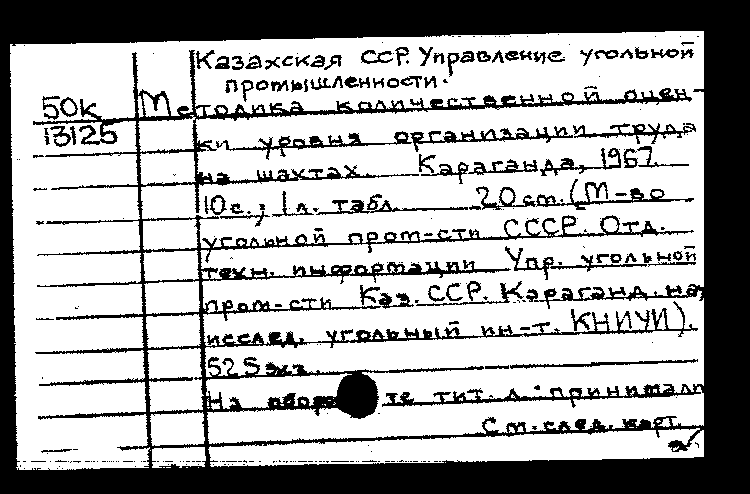 Казахская ССР. Управление угольной
промышленности.
50к Методика количественной оцен-
13125 ки уровня организации труда
на шахтах. Караганда, 1967.
10с.; 1л. табл. 20 cm. (М-во
угольной пром-сти СССР. Отд.
техн. информации Упр. угольной
пром-сти Каз. ССР. Караганд. науч
исслед. угольный ин-т. КНИУИ).
525 экз.
На оборо те тит. л.: принимали
См. след. карт.